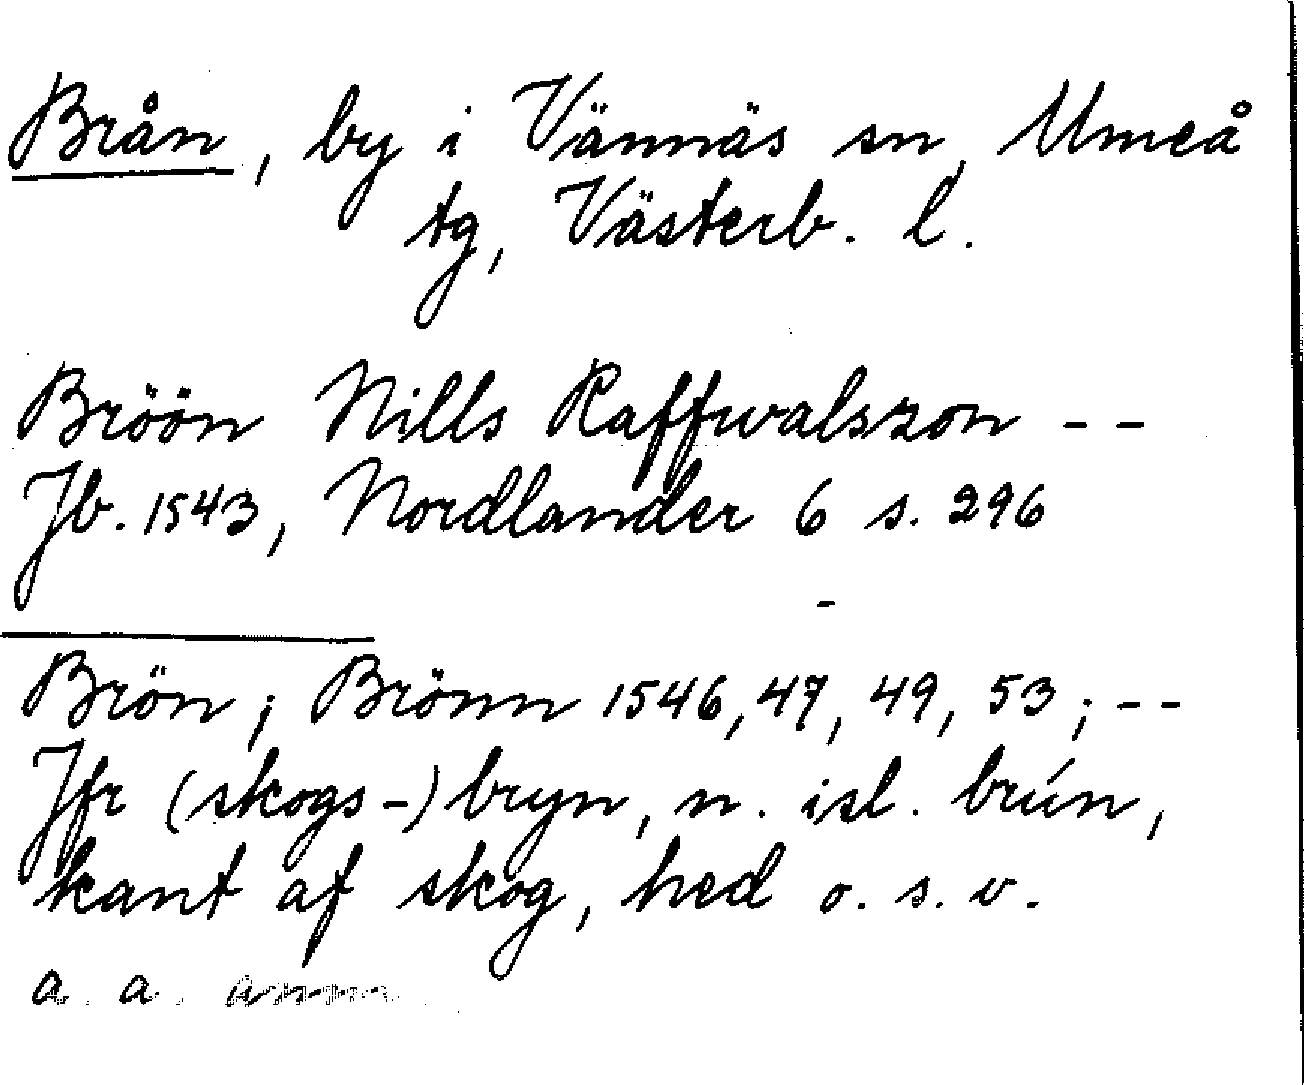 Brån, by i Vännäs sn, Umeå
tg, Västerb. l.
Bröön Nills Raffwalszon --
Jb. 1543, Nordlander 6 s. 296
Brön; Brönn 1546, 47, 49, 53; --
Jfr (skogs-) bryn, n. isl. brún,
kant af skog, hed o. s. v.
a. a. anm.